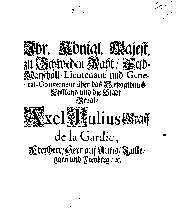 Ihr. Königl. Majest.
zu Schweden Raht, Feld-
Marschall-Lieutenant und Gene-
ral-Gouverneur über das Hertzogthumb
Ehstland und die Stadt
Reval,
Axel Julius Graff
de la Gardie,
Freyherr, Herr auf
und Freyberg, &c.